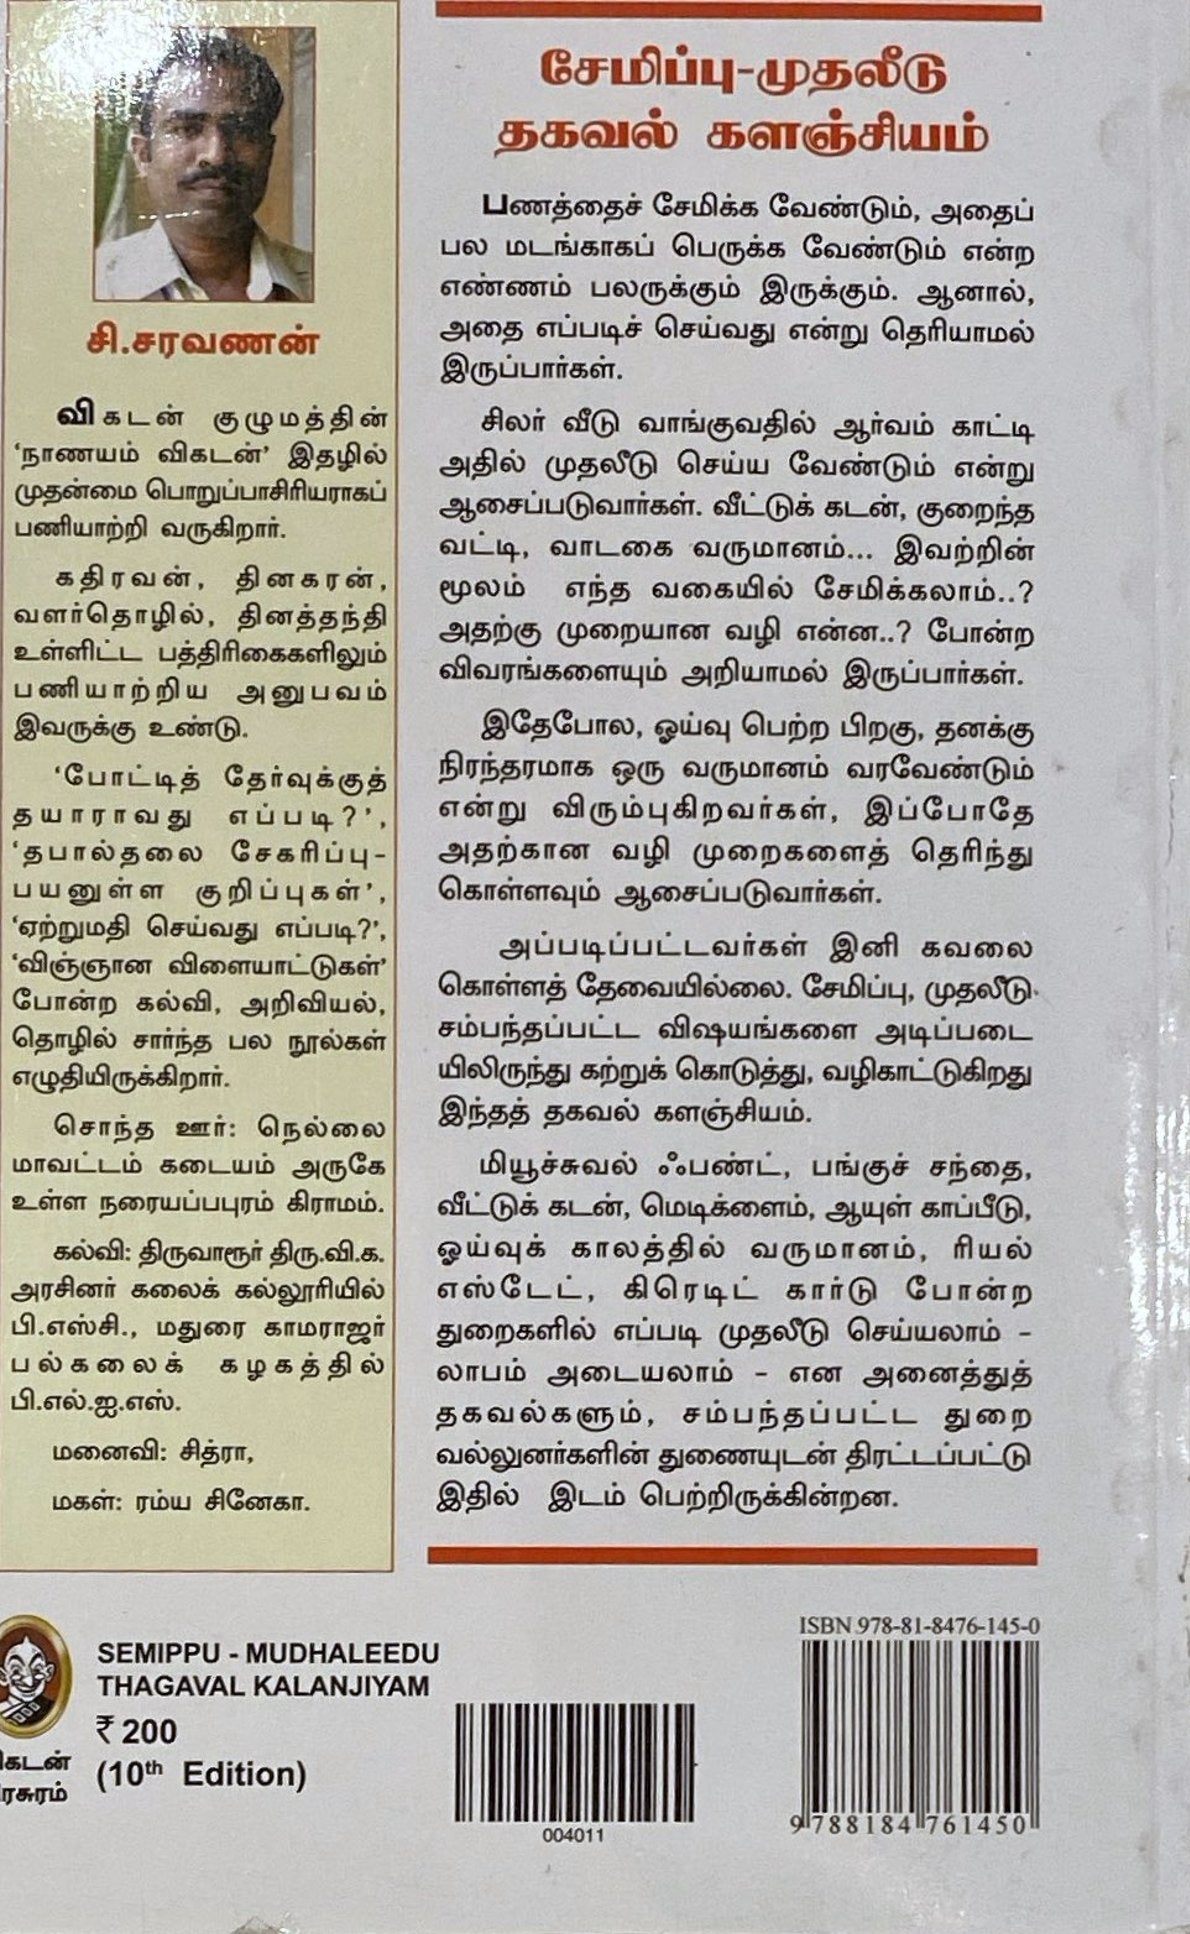 சி.சரவணன்
விகடன் குழுமத்தின்
‘நாணயம் விகடன்’ இதழில்
முதன்மை பொறுப்பாசிரியராகப்
பணியாற்றி வருகிறார்.
கதிரவன், தினகரன்,
வளர்தொழில், தினத்தந்தி
உள்ளிட்ட பத்திரிகைகளிலும்
பணியாற்றிய அனுபவம்
இவருக்கு உண்டு.
‘போட்டித் தேர்வுக்குத்
தயாராவது எப்படி?’,
‘தபால்தலை சேகரிப்பு-
பயனுள்ள குறிப்புகள்’,
‘ஏற்றுமதி செய்வது எப்படி?’,
‘விஞ்ஞான விளையாட்டுகள்’
போன்ற கல்வி, அறிவியல்,
தொழில் சார்ந்த பல நூல்கள்
எழுதியிருக்கிறார்.
சொந்த ஊர்: நெல்லை
மாவட்டம் கடையம் அருகே
உள்ள நரையப்பபுரம் கிராமம்.
கல்வி: திருவாரூர் திரு.வி.க.
அரசினர் கலைக் கல்லூரியில்
பி.எஸ்சி., மதுரை காமராஜர்
பல்கலைக் கழகத்தில்
பி.எல்.ஐ.எஸ்.
மனைவி: சித்ரா,
மகள்: ரம்ய சினேகா.
சேமிப்பு-முதலீடு
தகவல் களஞ்சியம்
பணத்தைச் சேமிக்க வேண்டும், அதைப்
பல மடங்காகப் பெருக்க வேண்டும் என்ற
எண்ணம் பலருக்கும் இருக்கும். ஆனால்,
அதை எப்படிச் செய்வது என்று தெரியாமல்
இருப்பார்கள்.
சிலர் வீடு வாங்குவதில் ஆர்வம் காட்டி
அதில் முதலீடு செய்ய வேண்டும் என்று
ஆசைப்படுவார்கள். வீட்டுக் கடன், குறைந்த
வட்டி, வாடகை வருமானம்... இவற்றின்
மூலம் எந்த வகையில் சேமிக்கலாம்..?
அதற்கு முறையான வழி என்ன..? போன்ற
விவரங்களையும் அறியாமல் இருப்பார்கள்.
இதேபோல, ஓய்வு பெற்ற பிறகு, தனக்கு
நிரந்தரமாக ஒரு வருமானம் வரவேண்டும்
என்று விரும்புகிறவர்கள், இப்போதே
அதற்கான வழி முறைகளைத் தெரிந்து
கொள்ளவும் ஆசைப்படுவார்கள்.
அப்படிப்பட்டவர்கள் இனி கவலை
கொள்ளத் தேவையில்லை. சேமிப்பு, முதலீடு
சம்பந்தப்பட்ட விஷயங்களை அடிப்படை
யிலிருந்து கற்றுக் கொடுத்து, வழிகாட்டுகிறது
இந்தத் தகவல் களஞ்சியம்.
மியூச்சுவல் ஃபண்ட், பங்குச் சந்தை,
வீட்டுக் கடன், மெடிக்ளைம், ஆயுள் காப்பீடு,
ஓய்வுக் காலத்தில் வருமானம், ரியல்
எஸ்டேட், கிரெடிட் கார்டு போன்ற
துறைகளில் எப்படி முதலீடு செய்யலாம் -
லாபம் அடையலாம் - என அனைத்துத்
தகவல்களும், சம்பந்தப்பட்ட துறை
வல்லுனர்களின் துணையுடன் திரட்டப்பட்டு
இதில் இடம் பெற்றிருக்கின்றன.
SEMIPPU - MUDHALEEDU
THAGAVAL KALANJIYAM
₹ 200
(10th Edition)
004011
ISBN 978-81-8476-145-0
9 788184 761450